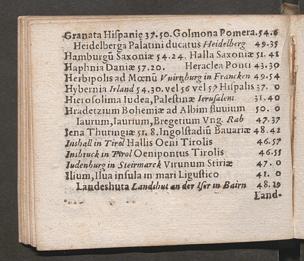 Granata Hispanię 37.50. Golmona Pomera. 54.6
Heidelberga Palatini ducatus Heidelberg 49.35
Hamburgū Saxoniæ 54.24. Halla Saxoniæ 51.41
Haphnia Daniæ 57.20. Heraclea Ponti 43.30
Herbipolis ad Mœnū Vuirtzburg in Francken 49.54
Hybernia Irland 54.30. vel 56 vel 57 Hispalis 37.0
Hierosolima Iudea, Palestinæ Ierusalem 31.40
Hradetzium Bohemiæ ad Albim fluuium 50.0
Iaurum, Iaurium, Bregetium Vng. Rab 47.37
Iena Thuringiæ 51.8. Ingolstadiū Bauariæ 48.42
Inshall in Tirol Hallis Oeni Tirolis 46.57
Insbruck in Tirol Oenipontus Tirolis 46.57
Iudenburg in Steirmarck Virunum Stiriæ 47.0
Ilium, Ilua insula in mari Ligustico 41.0
Landeshuta Landshut an der Iser in Bairn 48.29
Land-